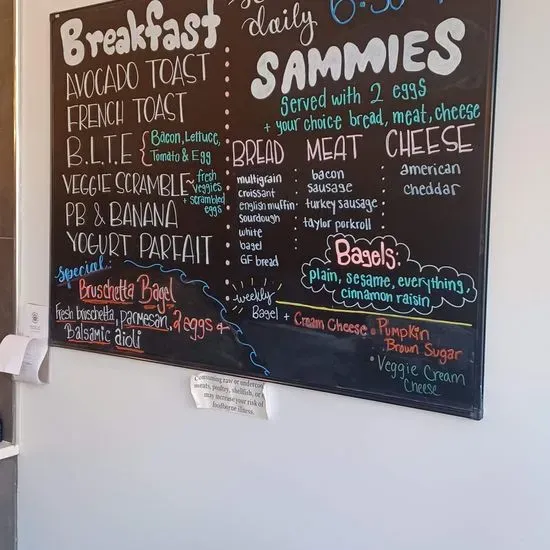 Breakfast
AVOCADO TOAST
FRENCH TOAST
B.L.T.E { Bacon, Lettuce,
Tomato & Egg
VEGGIE SCRAMBLE fresh
veggies
+ scrambled
eggs
PB & BANANA
YOGURT PARFAIT
Special:
Bruschetta Bagel
fresh bruschetta, parmesan, 2 eggs +
Balsamic aioli
daily
SAMMIES
Served with 2 eggs
+ your choice bread, meat, cheese
BREAD
multigrain
croissant
english muffin
sourdough
white
bagel
GF bread
MEAT
bacon
sausage
turkey sausage
taylor porkroll
CHEESE
american
cheddar
Bagels:
plain, sesame, everything,
cinnamon raisin
weekly
Bagel + Cream Cheese • Pumpkin
Brown Sugar
• Veggie Cream
Cheese
Consuming raw or undercooked
meats, poultry, shellfish, or
may increase your risk of
foodborne illness.